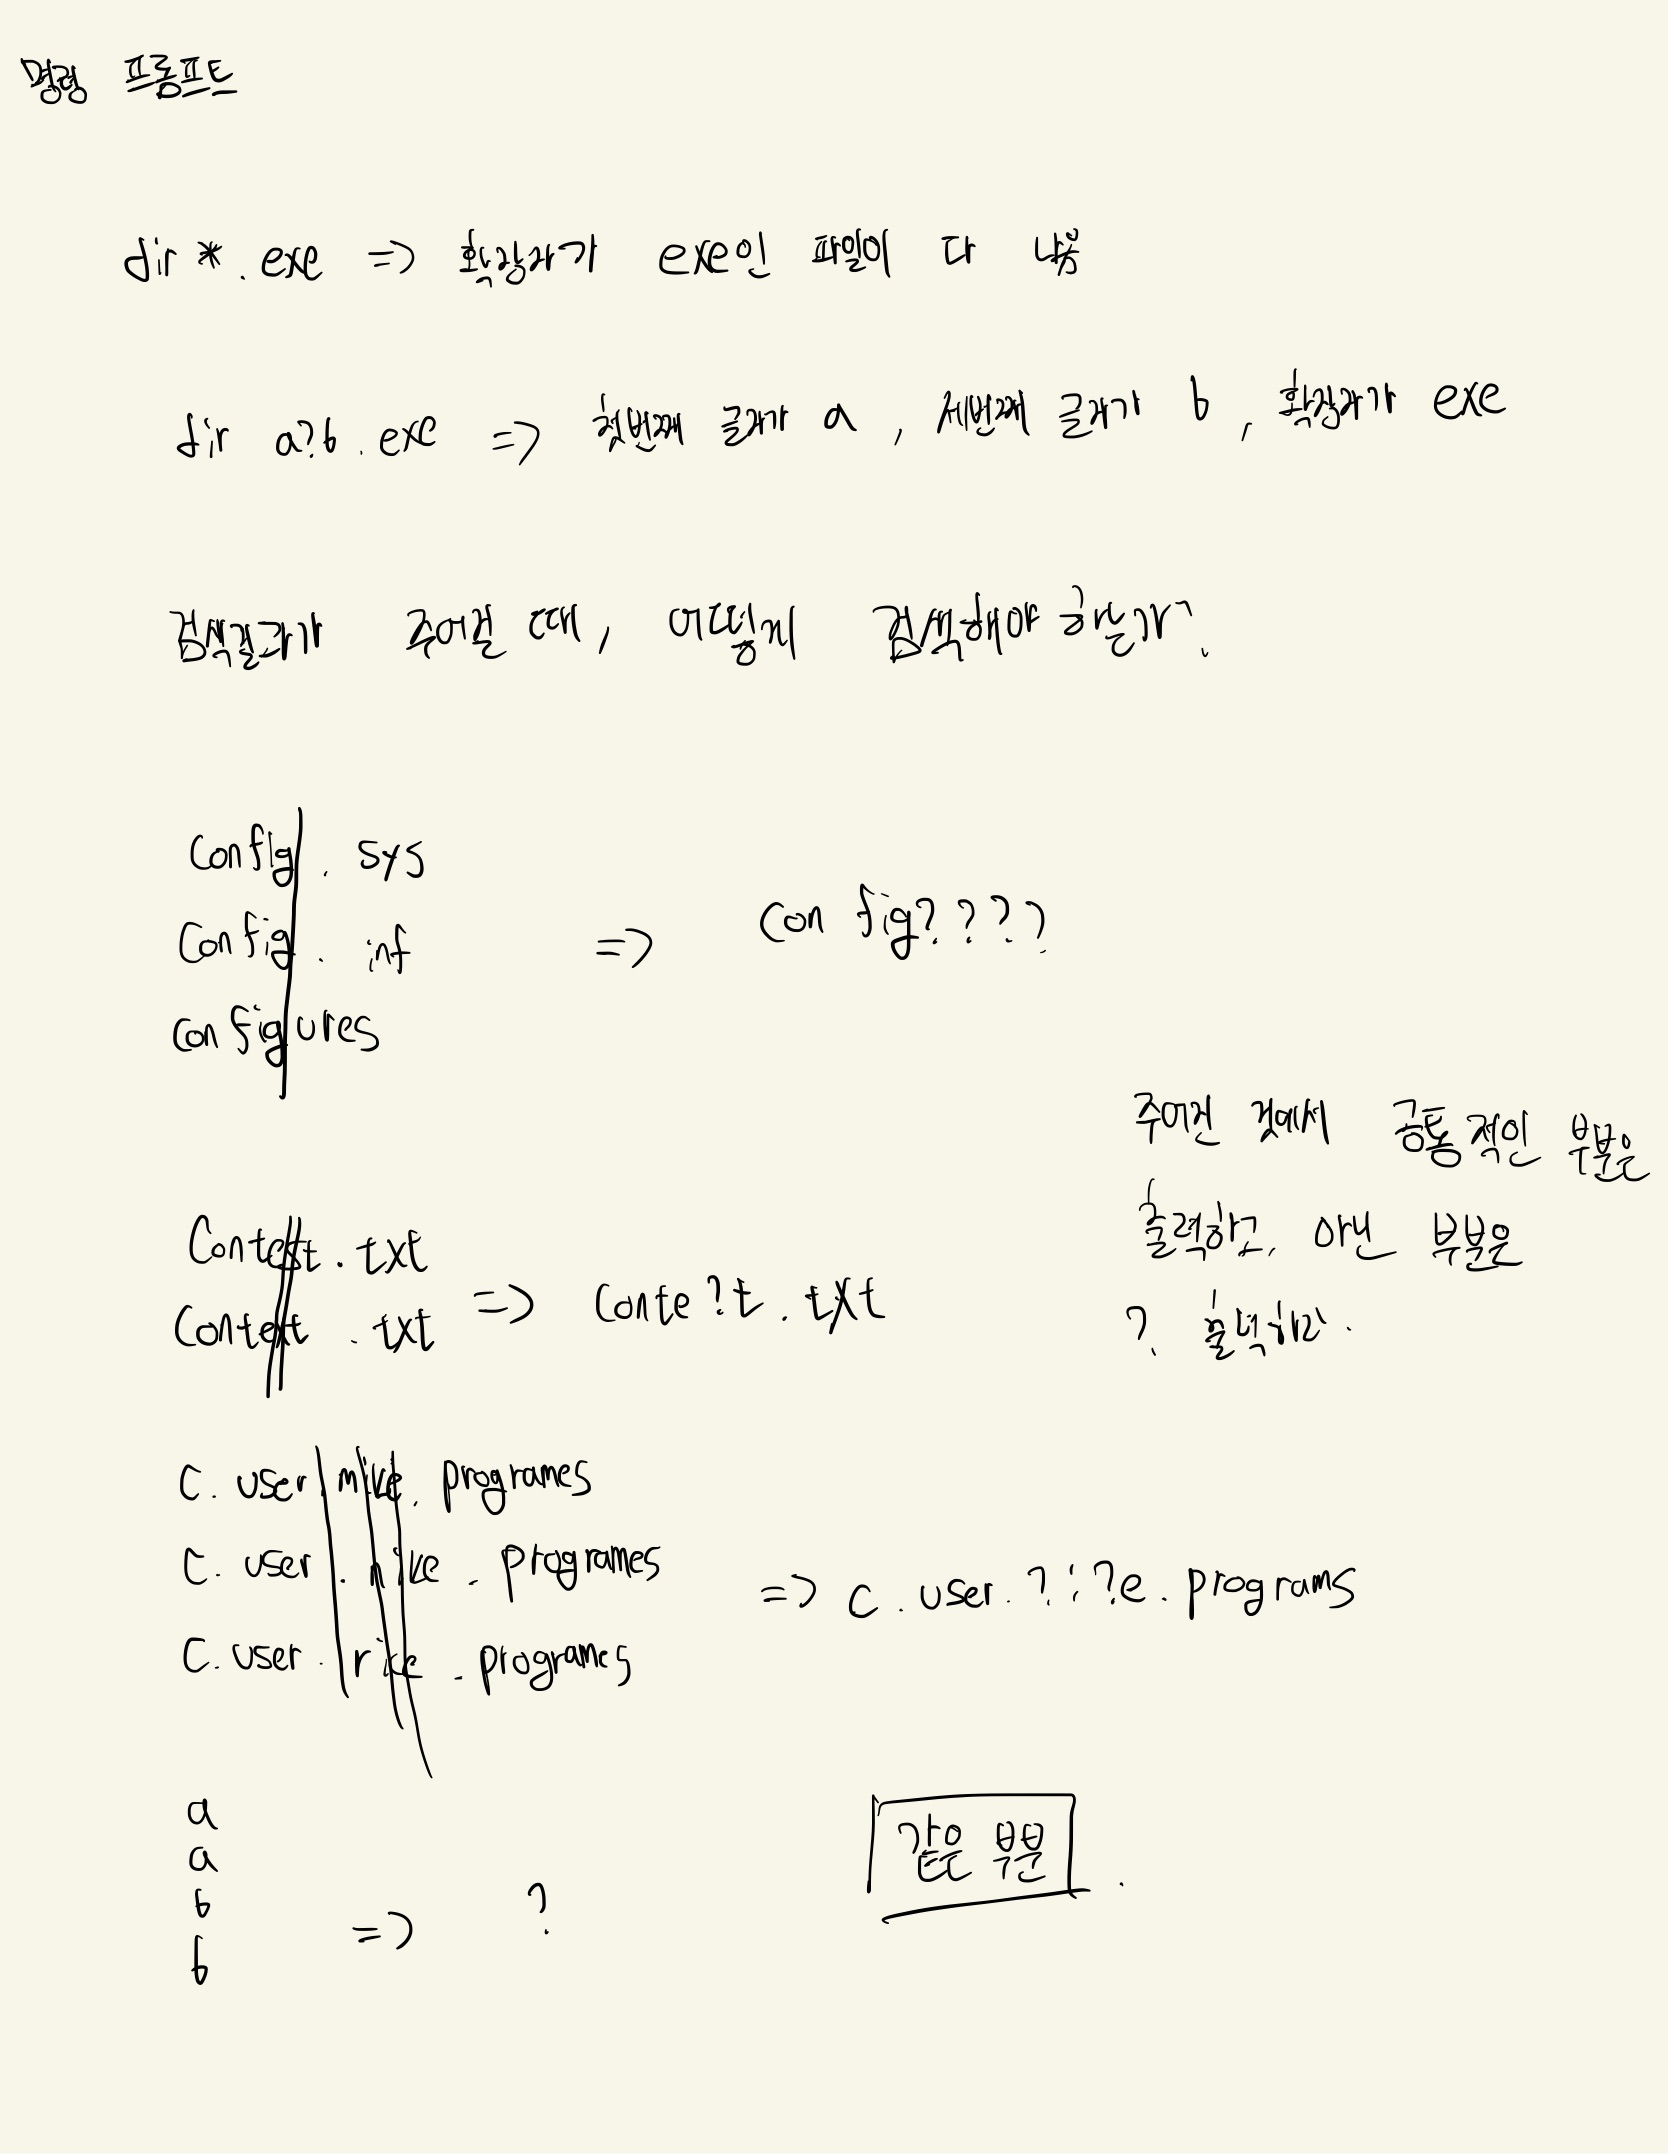 명령 프롬프트
dir *.exe => 확장자가 exe인 파일이 다 나옴
dir a?b.exe => 첫번째 글자가 a, 세번째 글자가 b, 확장자가 exe
검색결과가 주어질 때, 어떻게 검색해야 하는가?
config.sys
config.inf => config????
configures
주어진 것에서 공통적인 부분은
출력하고, 아닌 부분은
? 출력하라.
Contest.txt
Context.txt => Conte?t.txt
c.user.mike.programes
c.user.nike.programes => c.user.?i?e.programs
c.user.rice.programes
a
a
b
b => ?
같은 부분.